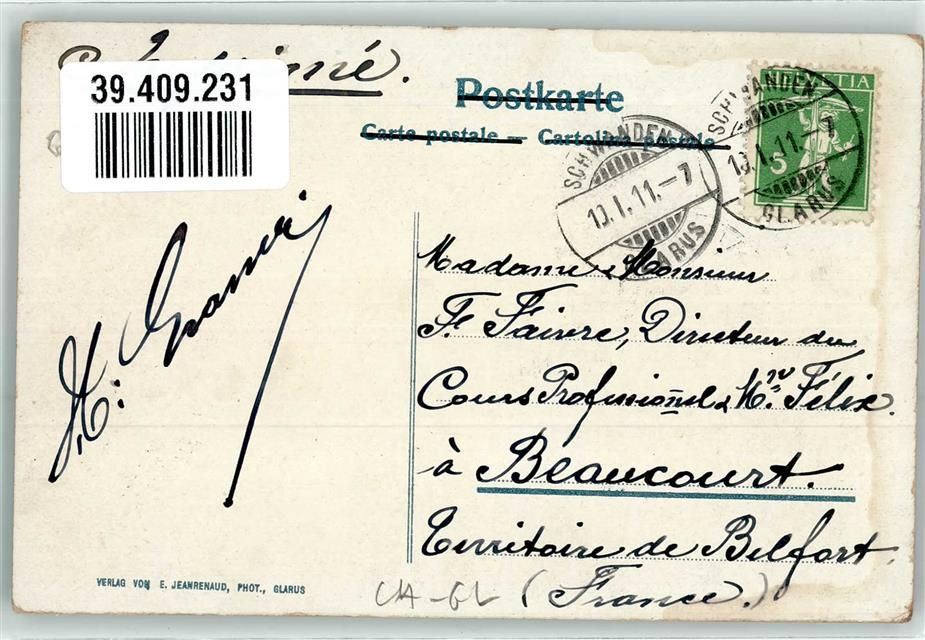 39.409.231
Postkarte
Carte postale — Cartolina postale
HELVETIA
5
SCHWANDEN
10.I.11.–7
GLARUS
SCHWANDEN
10.I.11.–7
GLARUS
Madame & Monsieur
F. Faivre, Directeur du
Cours Professionnel, Félix
à Beaucourt.
Territoire de Belfort.
(France.)
VERLAG VON E. JEANRENAUD, PHOT., GLARUS